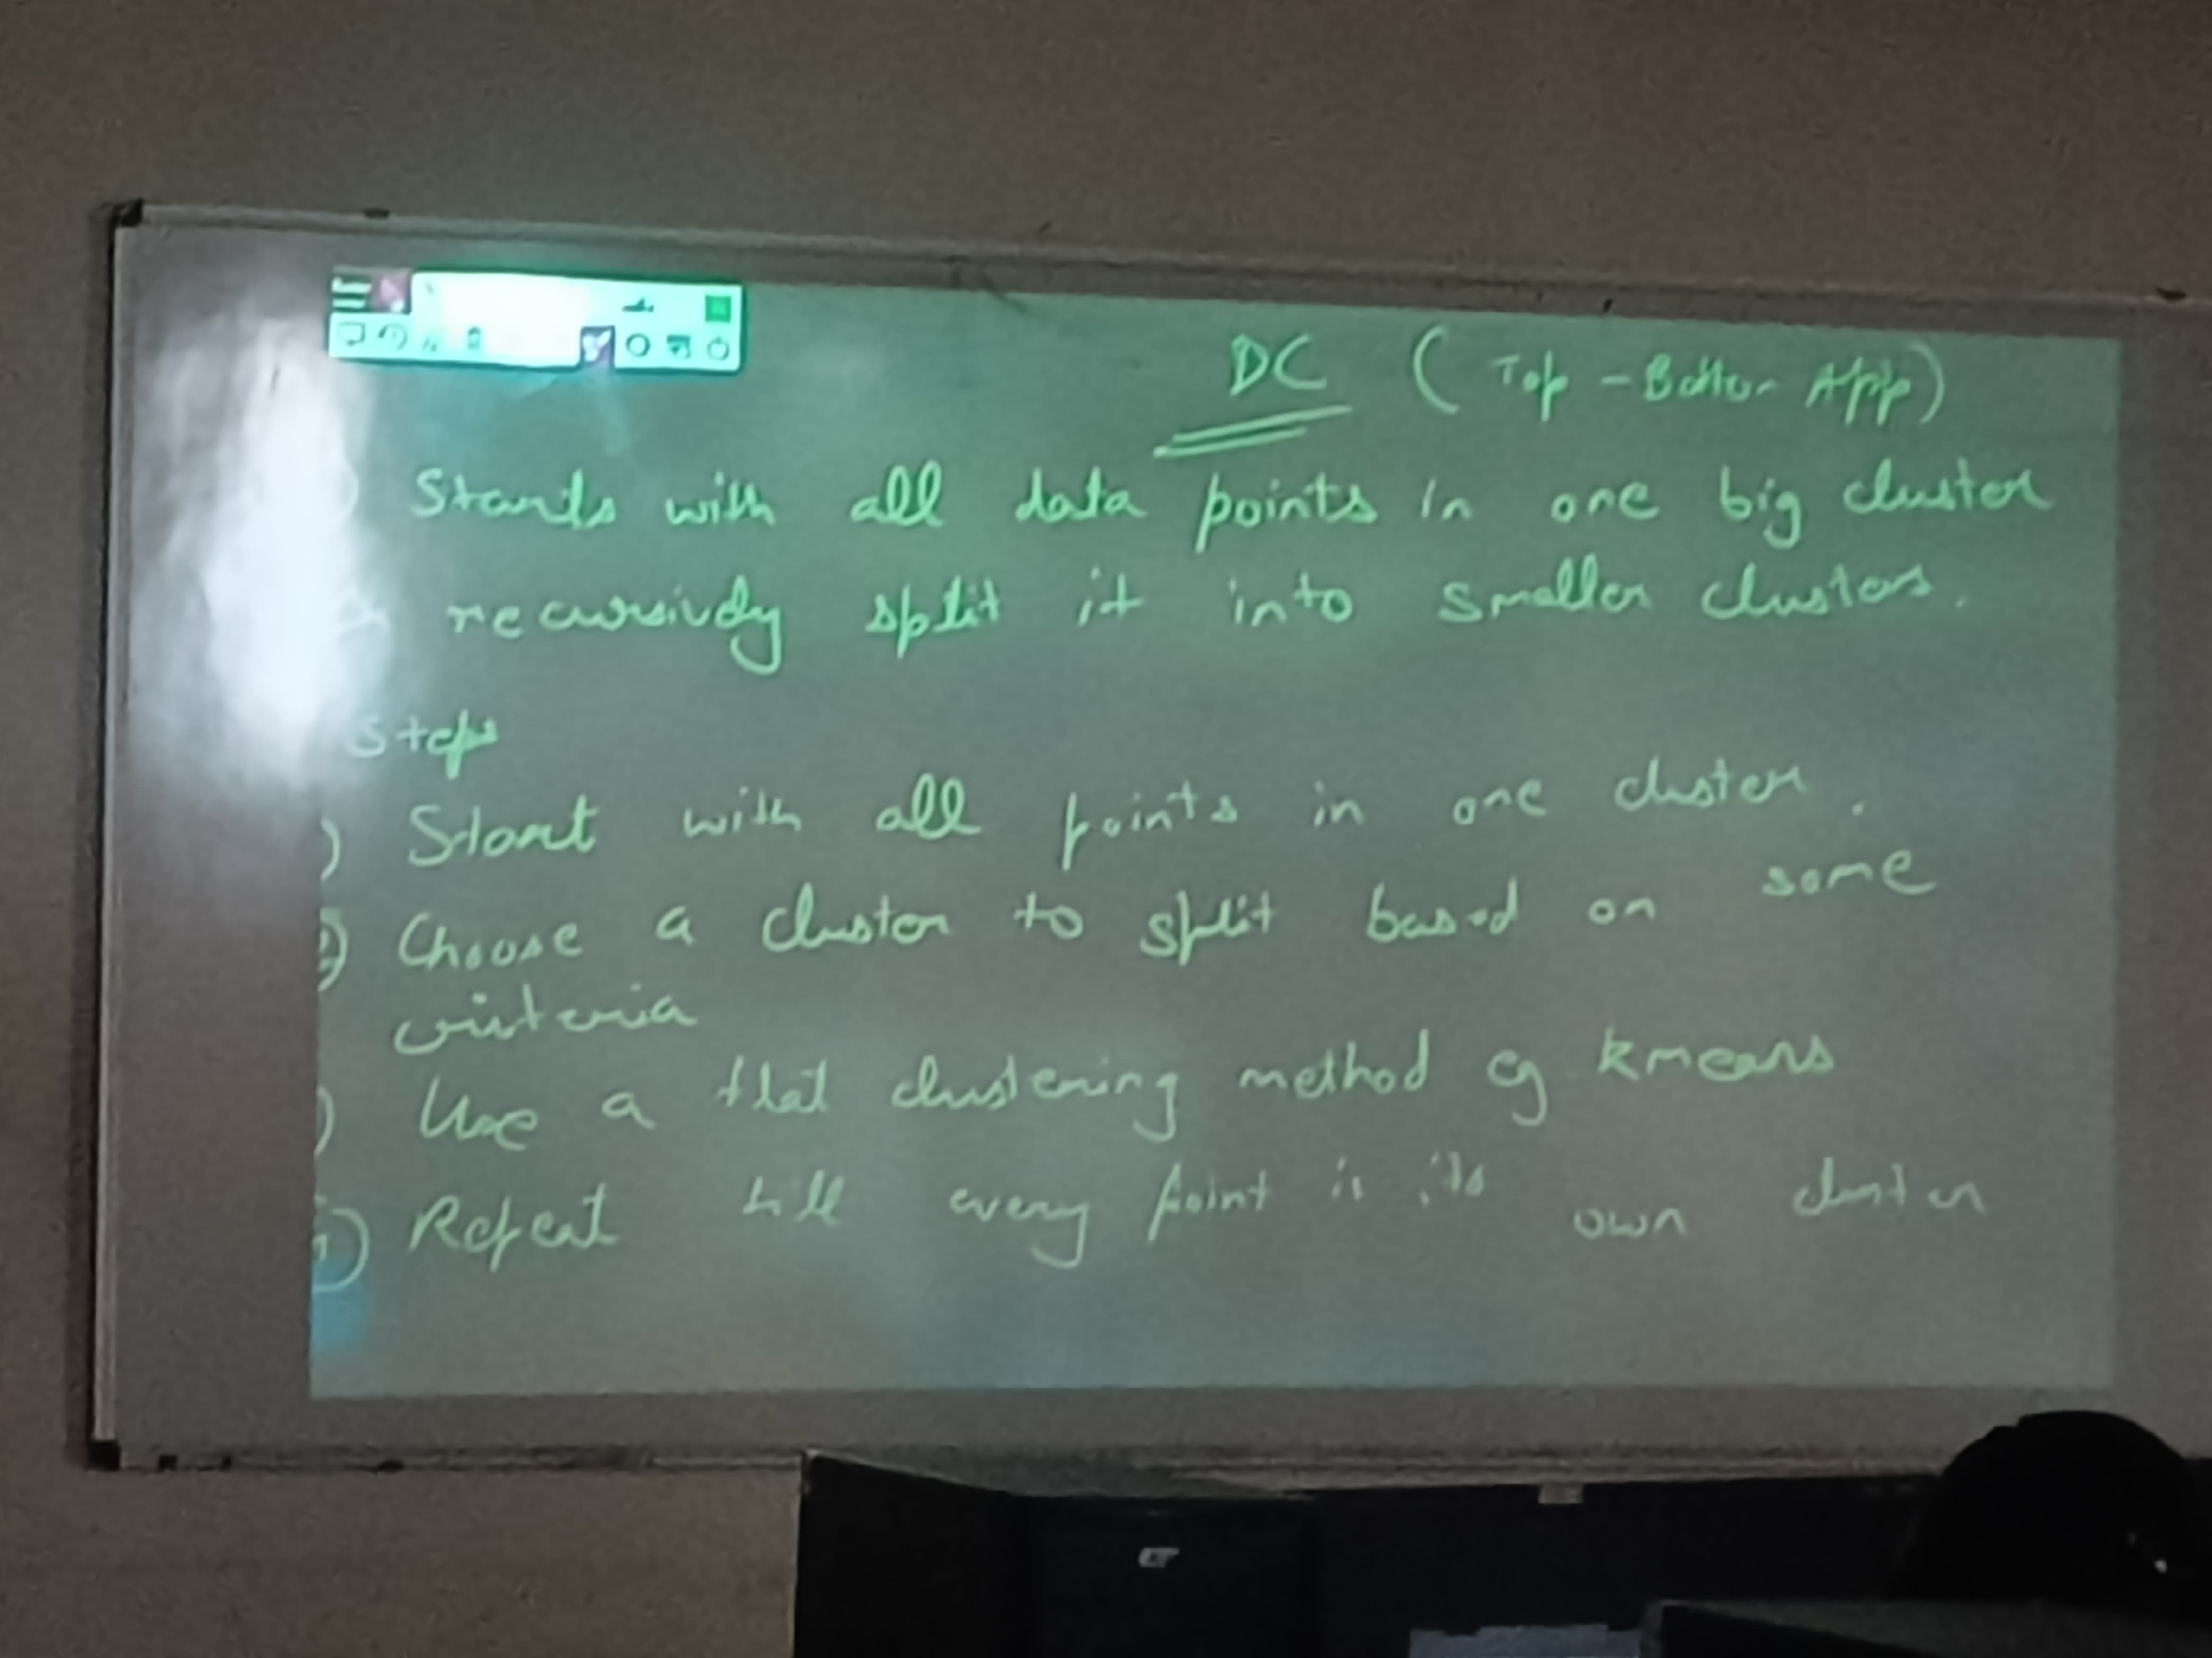 DC (Top - Bottom App)
) Starts with all data points in one big cluster
& recursively split it into smaller clusters.
Steps
) Start with all points in one cluster.
2) Choose a cluster to split based on some
criteria
) Use a flat clustering method eg kmeans
) Repeat till every point is its own cluster